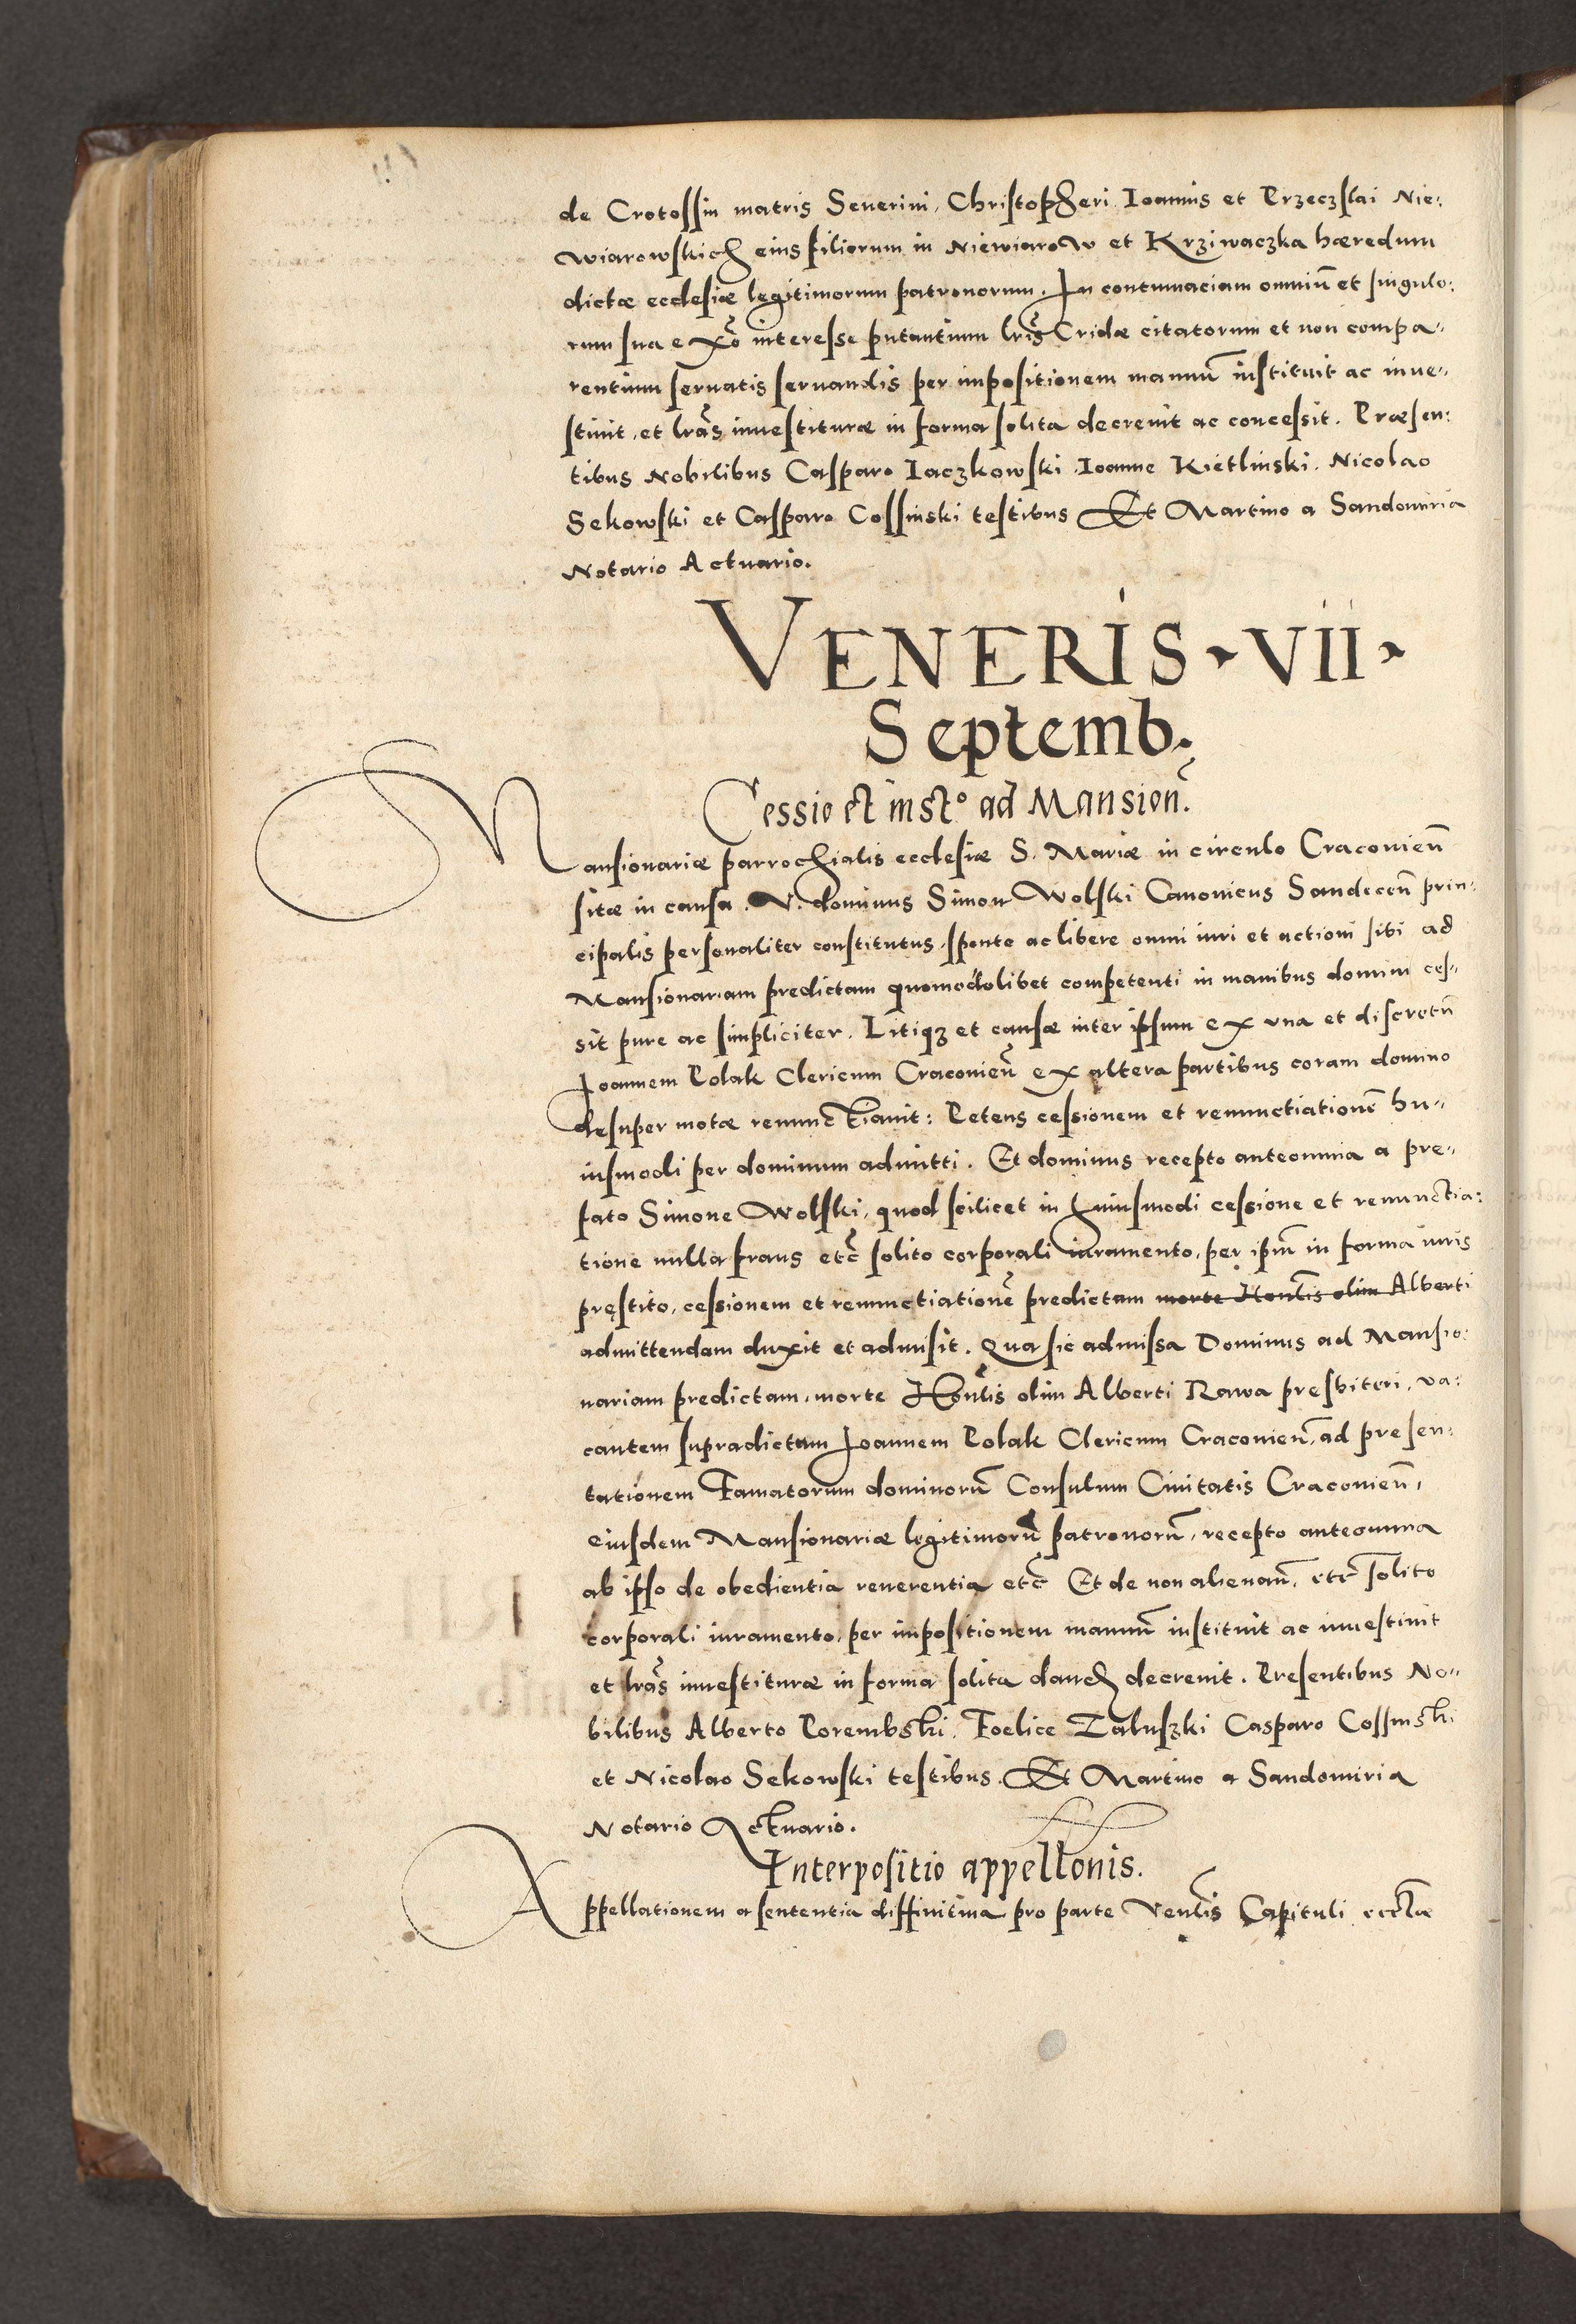 de Crotossin matris Seuerini, Christopheri Ioannis et Przeczslai Nie:
wiarowskich eius filiorum in Niewiarow et Krziwaczka hæredum
dictæ ecclesiæ legitimorum patronorum. In contumaciam omniũ et singulo:
rum sua ex~o interesse putantium lr̃is Cridæ citatorum et non compa-
rentium seruatis seruandis per impositionem manuũ instituit ac inue-
stiuit, et lr̃as inuestituræ in forma solita decreuit ac concessit. Præsen:
tibus Nobilibus Casparo Iaczkowski, Ioanne Kietlinski, Nicolao
Sekowski et Casparo Cossinski testibus Et Martino a Sandomiria
Notario Actuario.
VENERIS · VII ·
Septemb.
Cessio et instº ad Mansioñ.
Mansionariæ parrochialis ecclesiæ S. Mariæ in circulo Cracouieñ
sitæ in causa. V. dominus Simon Wolski Canonicus Sandeceñ prin-
cipalis personaliter constitutus, sponte ac libere omni iuri et actioni sibi ad
Mansionariam predictam quomodolibet competenti in manibus domini ces-
sit pure ac simpliciter. Litiqз et causæ inter ipsum ex vna et discretũ
Ioannem Polak Clericum Cracouieñ ex altera partibus coram domino
desuper motæ renunctiauit: Petens cessionem et renunctiationẽ hu-
iusmodi per dominum admitti. Et dominus recepto anteomnia a pre-
fato Simone Wolski, quod scilicet in huiusmodi cessione et renunctia:
tione nulla fraus etc̃ solito corporali iuramento, per ipm̃ in forma iuris
pręstito, cessionem et renunctiationẽ predictam morte Honl̃is olim Alberti
admittendam duxit et admisit. Qua sic admissa Dominus ad Mansio:
nariam predictam, morte Honl̃is olim Alberti Rawa pręsbiteri, va:
cantem supradictum Ioannem Polak Clericum Cracouieñ, ad presen:
tationem Famatorum dominorũ Consulum Ciuitatis Cracouieñ,
eiusdem Mansionariæ legitimorũ patronorũ, recepto anteomnia
ab ipso de obedientia reuerentia etc̃ Et de non alienañ, etc̃ solito
corporali iuramento, per impositionem manuũ instituit ac inuestiuit
et lr̃as inuestituræ in forma solita dand decreuit. Presentibus No-
bilibus Alberto Porembski, Foelice Zaluszki Casparo Cossinski
et Nicolao Sekowski testibus. Et Martino a Sandomiria
Notario Actuario.
Interpositio appell̃onis.
Appellationem a sententia diffinitiua pro parte Venl̃is Capituli eccl̃æ